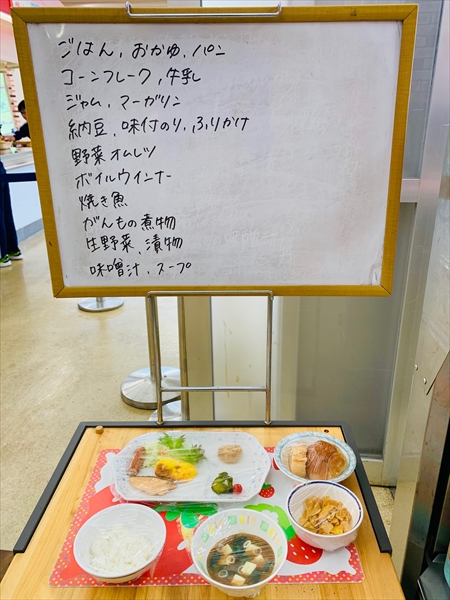 ごはん、おかゆ、パン
コーンフレーク、牛乳
ジャム、マーガリン
納豆、味付のり、ふりかけ
野菜オムレツ
ボイルウインナー
焼き魚
がんもの煮物
生野菜、漬物
味噌汁、スープ